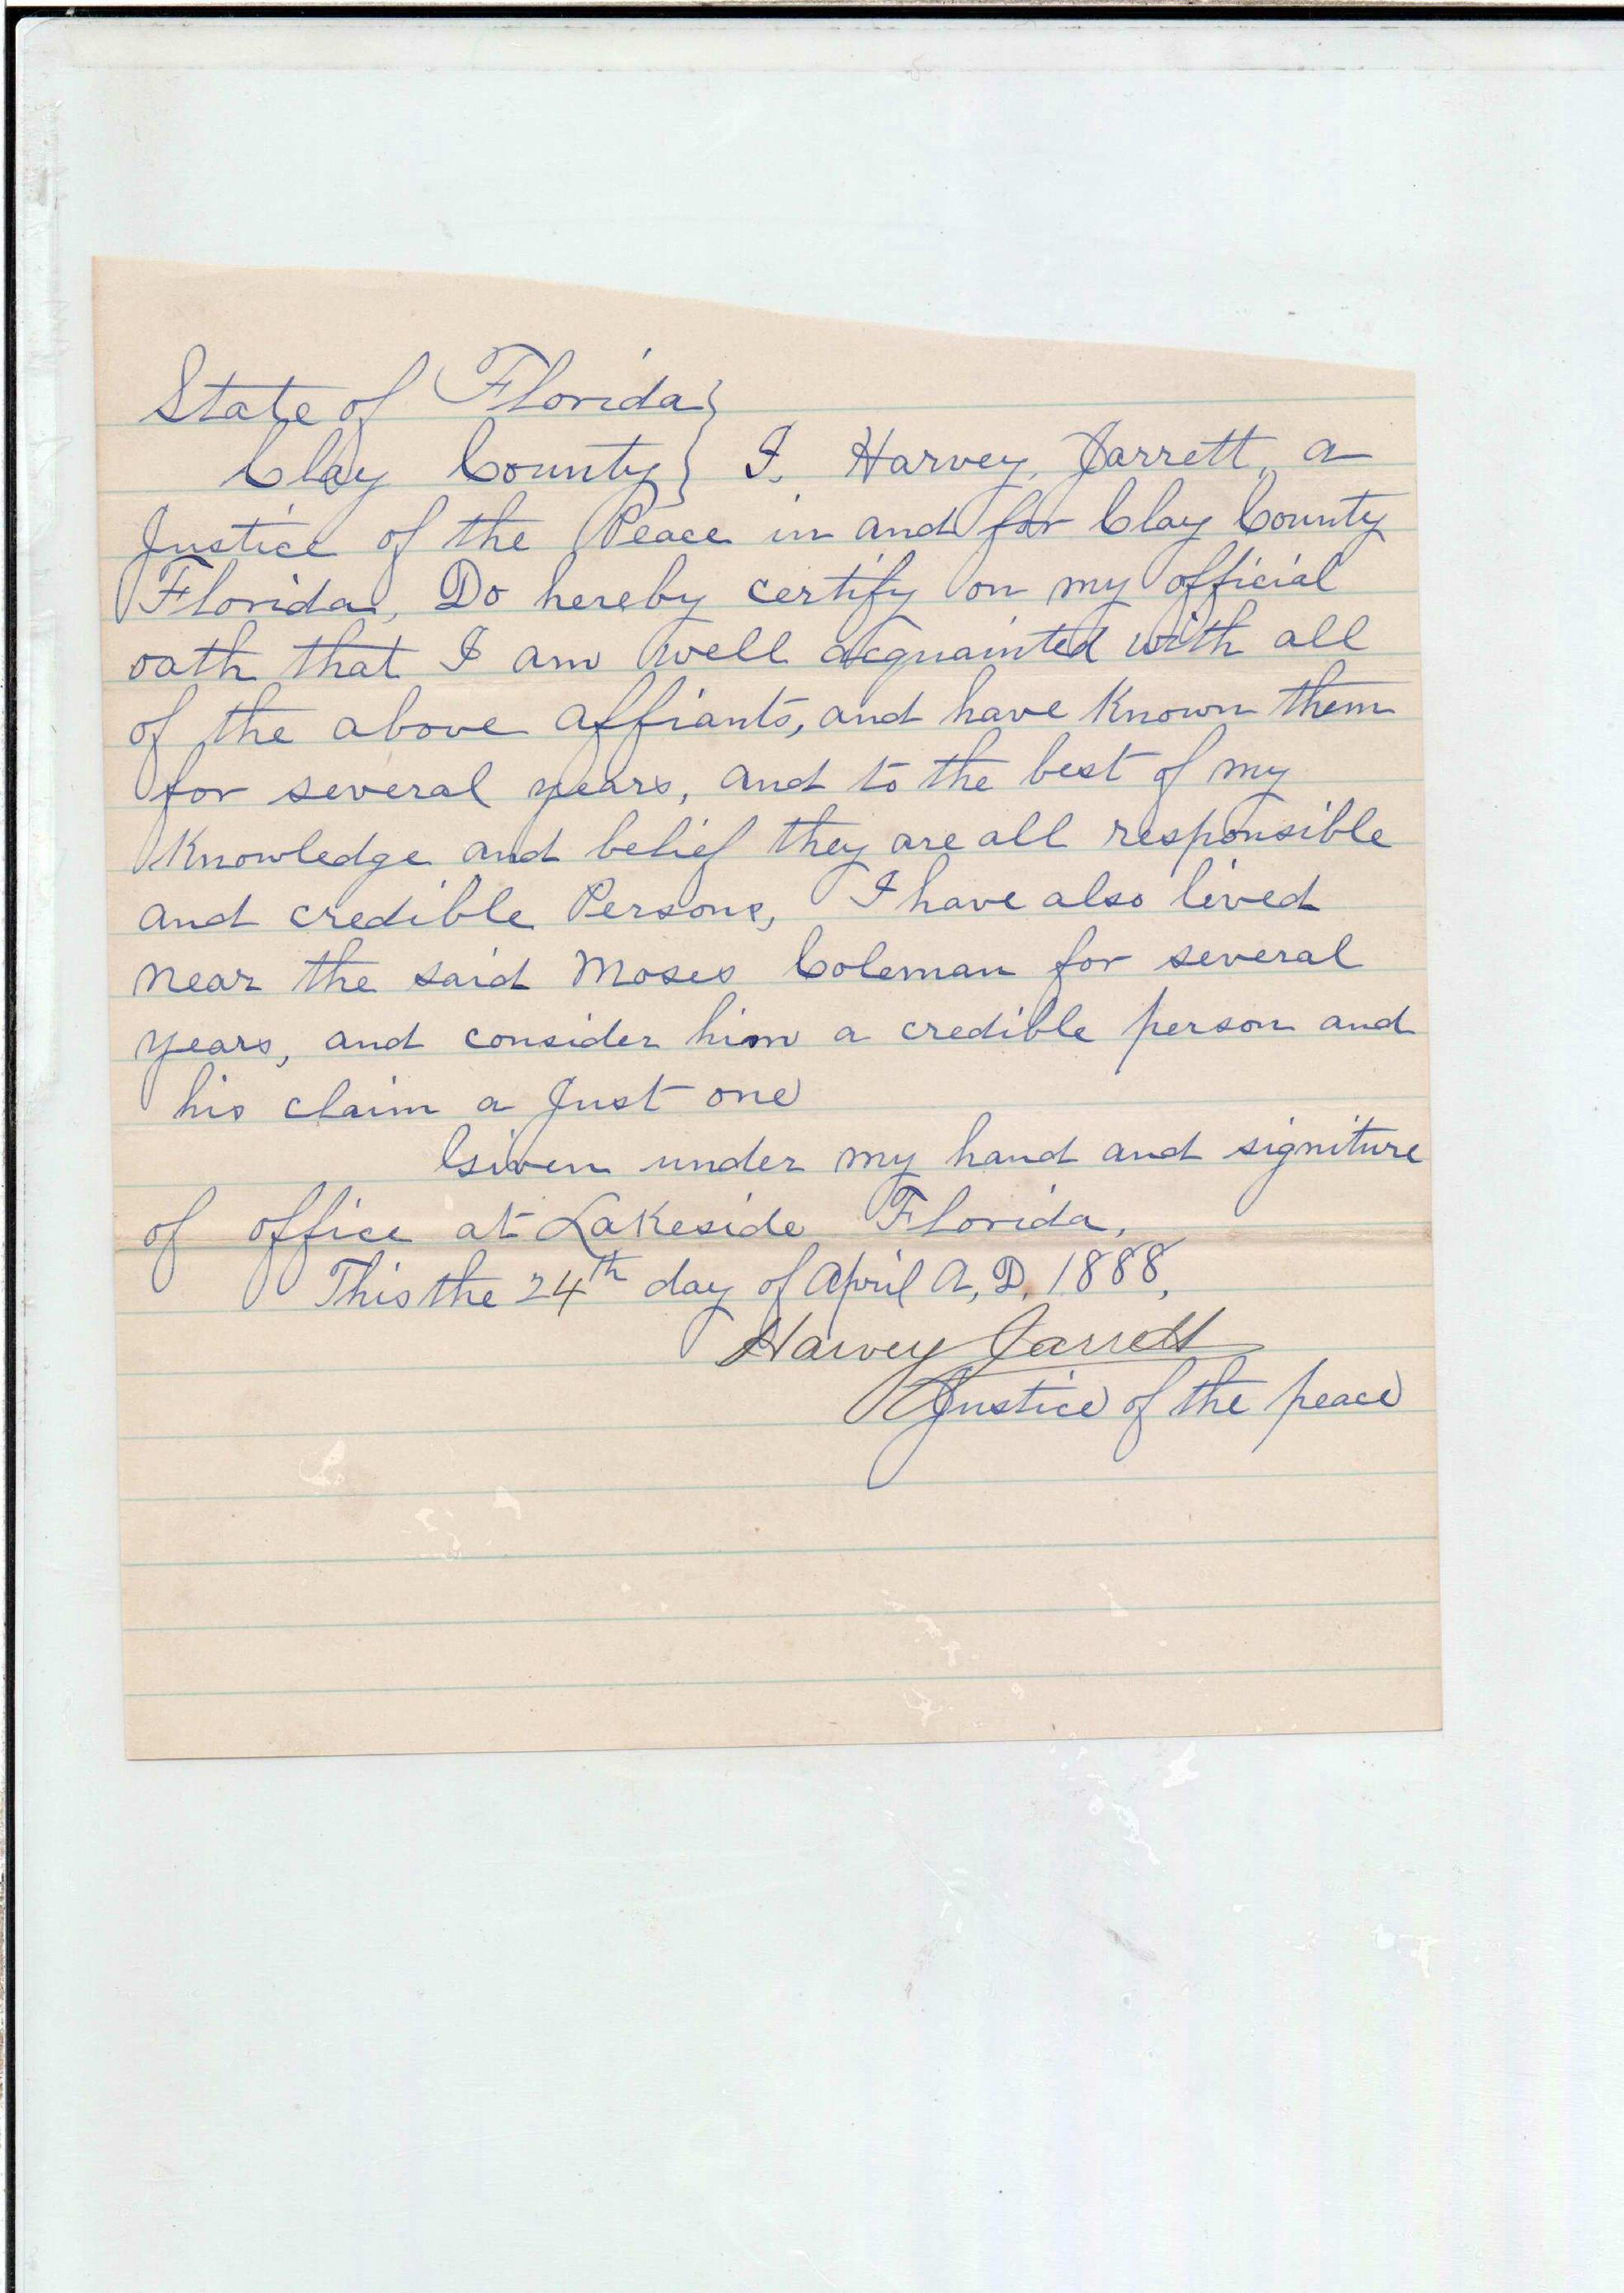 State of Florida }
Clay County } I, Harvey, Jarrett, a
Justice of the Peace in and for Clay County
Florida, Do hereby certify on my official
oath that I am well acquainted with all
of the above affiants, and have Known them
for several years, and to the best of my
Knowledge and belief they are all responsible
and credible Persons, I have also lived
near the said Moses Coleman for several
years, and consider him a credible person and
his claim a Just one
Given under my hand and signiture
of office at Lakeside Florida,
This the 24th day of April A, D, 1888,
Harvey Jarrett
Justice of the peace